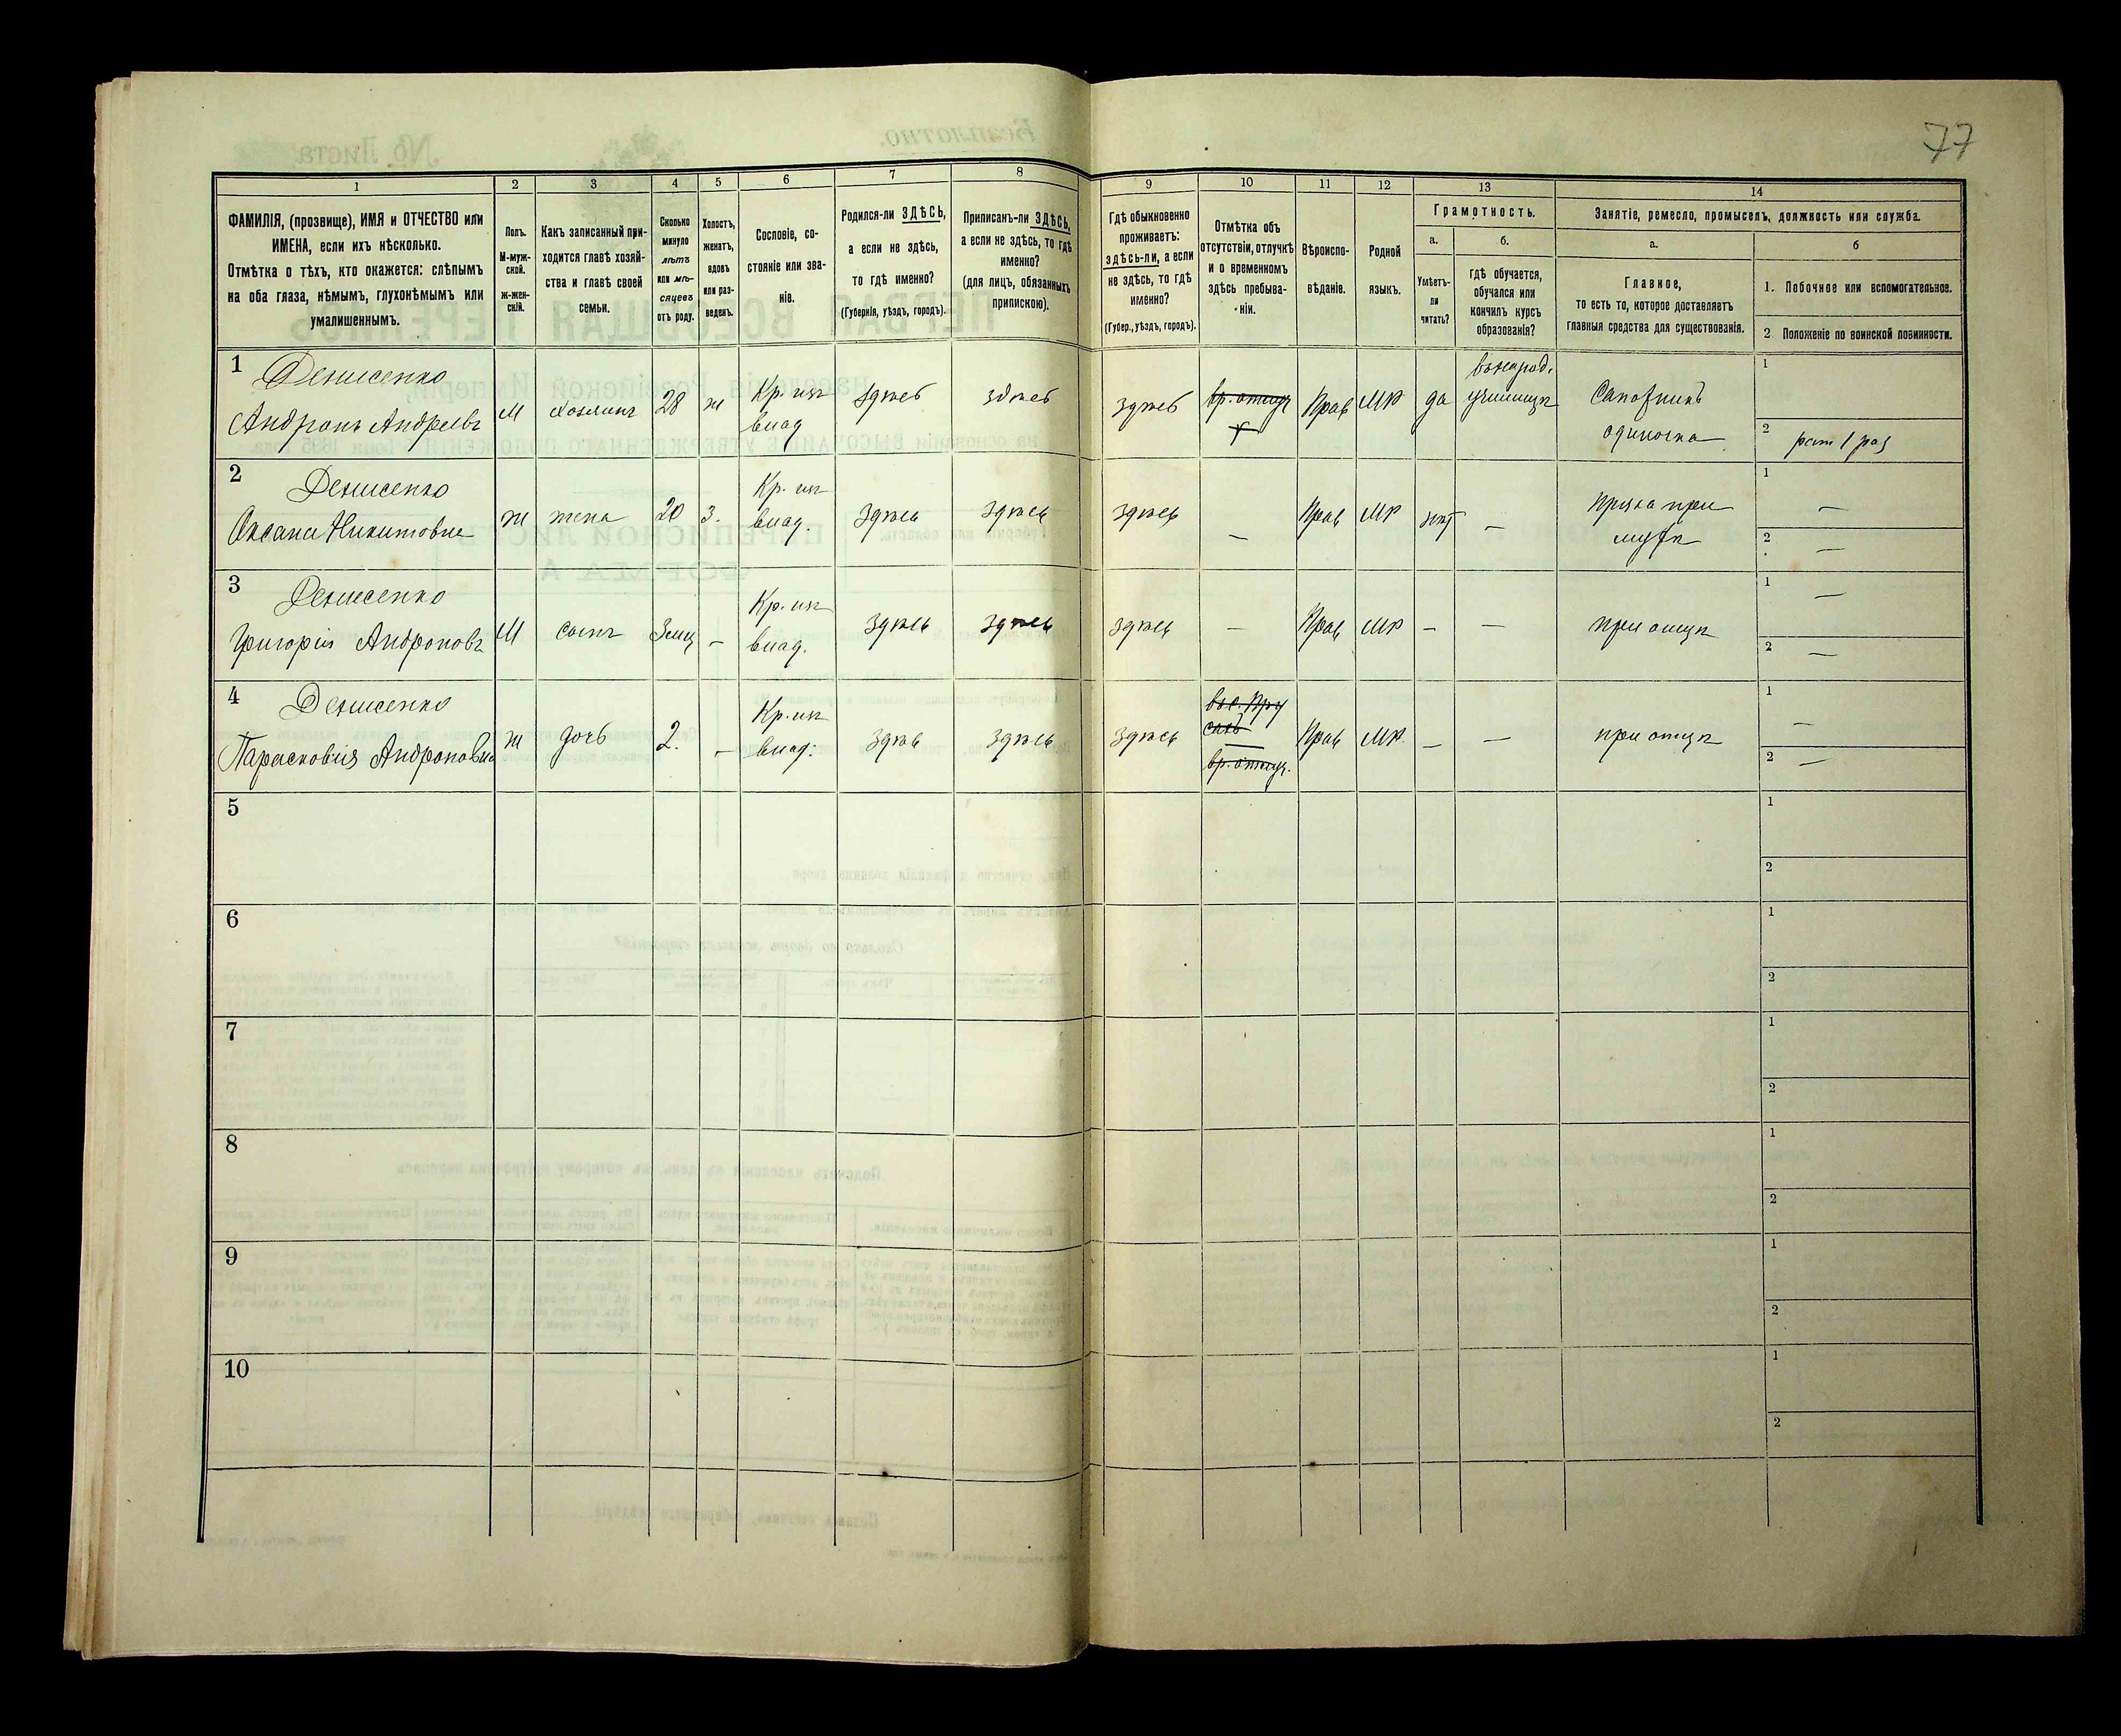 77
1 2 3 4 5 6 7 8 9 10 11 12 13 14
ФАМИЛІЯ, (прозвище), ИМЯ и ОТЧЕСТВО или
ИМЕНА, если ихъ нѣсколько.
Отмѣтка о тѣхъ, кто окажется: слѣпымъ
на оба глаза, нѣмымъ, глухонѣмымъ или
умалишеннымъ.
Полъ.
М-муж-
ской.
Ж-жен-
скій.
Какъ записанный при-
ходится главѣ хозяй-
ства и главѣ своей
семьи.
Сколько
минуло
лѣтъ
или мѣ-
сяцевъ
отъ роду.
Холостъ,
женатъ,
вдовъ
или раз-
веденъ.
Сословіе, со-
стояніе или зва-
ніе.
Родился-ли ЗДѢСЬ,
а если не здѣсь,
то гдѣ именно?
(Губернія, уѣздъ, городъ).
Приписанъ-ли ЗДѢСЬ,
а если не здѣсь, то гдѣ
именно?
(для лицъ, обязанныхъ
припискою).
Гдѣ обыкновенно
проживаетъ:
здѣсь-ли, а если
не здѣсь, то гдѣ
именно?
(Губер., уѣздъ, городъ).
Отмѣтка объ
отсутствіи, отлучкѣ
и о временномъ
здѣсь пребыва-
ніи.
Вѣроиспо-
вѣданіе.
Родной
языкъ.
Грамотность.
а.
Умѣетъ-
ли
читать?
б.
гдѣ обучается,
обучался или
кончилъ курсъ
образованія?
Занятіе, ремесло, промыселъ, должность или служба.
а.
Главное,
то есть то, которое доставляетъ
главныя средства для существованія.
б
1. Побочное или вспомогательное.
2 Положеніе по воинской повинности.
1 Денисенко
Андронъ Андреевъ М Хозяинъ 28 ж Кр. изъ
влад здѣсь здѣсь здѣсь вр. отлуч Прав МР да въ народ.
училищѣ Сапожникъ
одиночка 1
2 рат 1 раз
2 Денисенко
Оксана Никитовна ж жена 20 з. Кр. изъ
влад. здѣсь здѣсь здѣсь — Прав МР нѣт — Пряха при
мужѣ 1 —
2 —
3 Денисенко
Григорій Андроновъ М сынъ 3 мц — Кр. изъ
влад. здѣсь здѣсь здѣсь — Прав МР — — при отцѣ 1 —
2 —
4 Денисенко
Парасковія Андроновна ж дочь 2. — Кр. изъ
влад. здѣсь здѣсь здѣсь вр. отлуч. Прав МР. — — при отцѣ 1 —
2 —
5 1
2
6 1
2
7 1
2
8 1
2
9 1
2
10 1
2